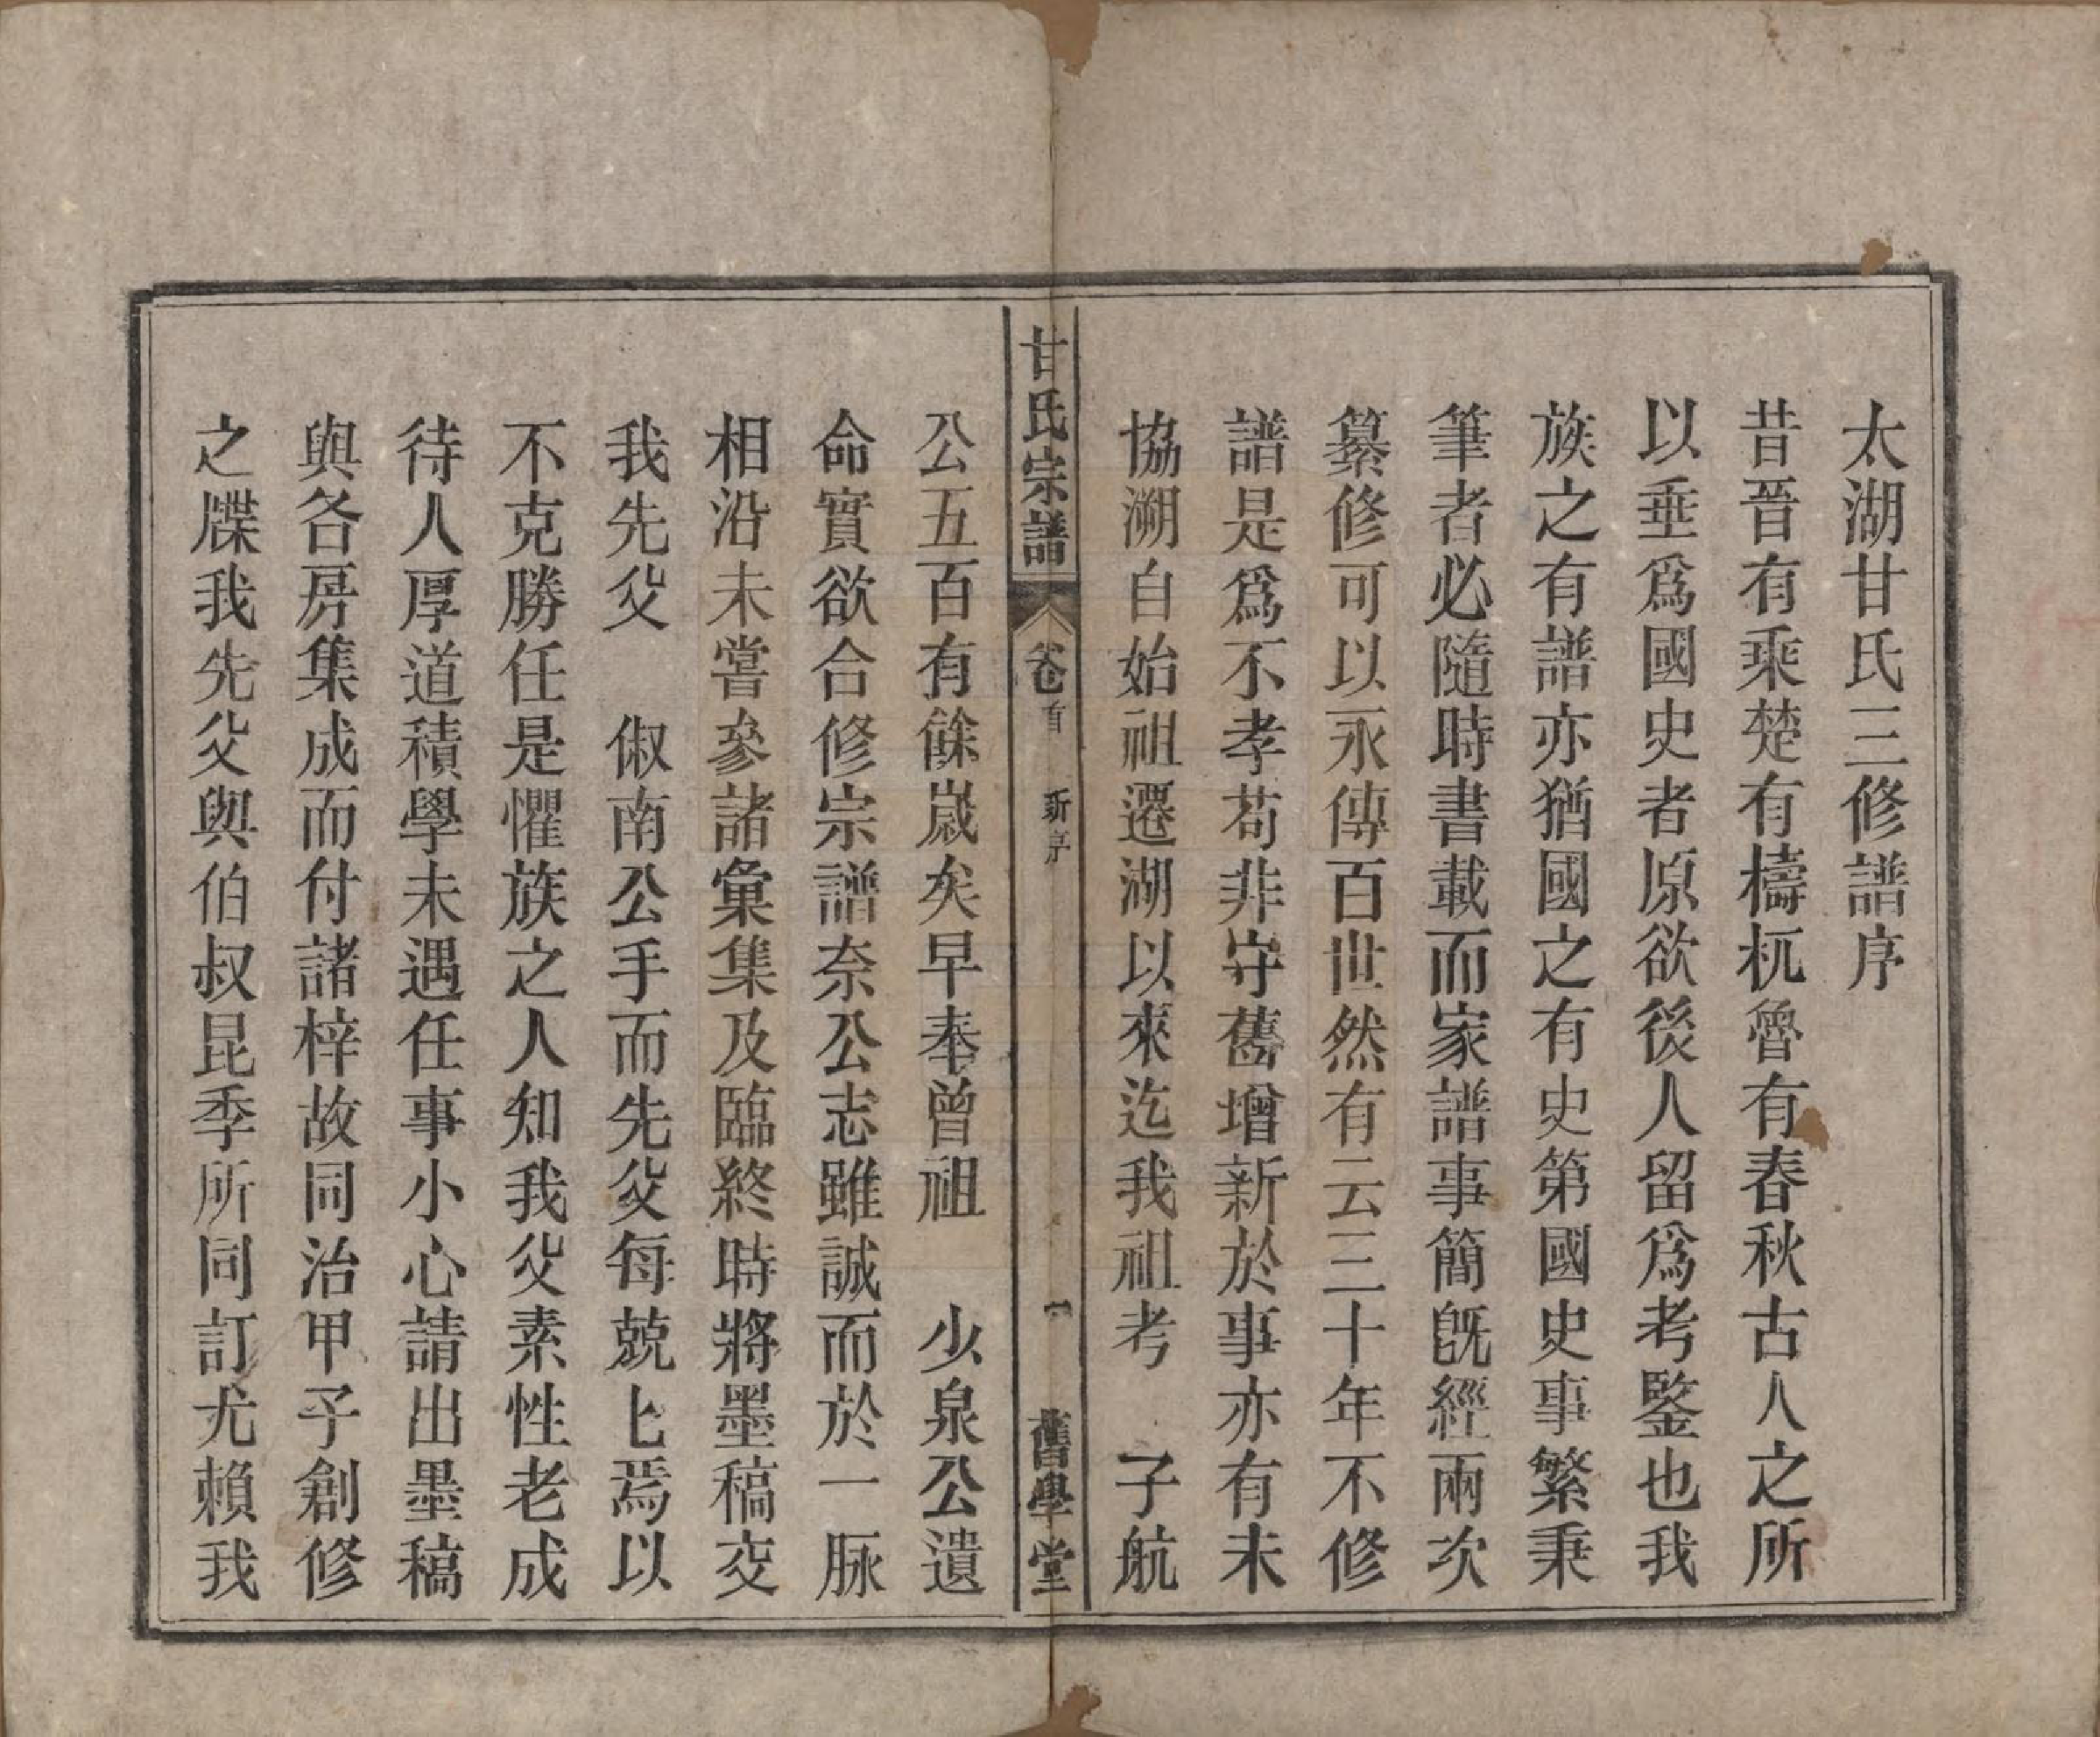 太湖甘氏三修譜序
昔晉有乘楚有檮杌魯有春秋古人之所
以垂爲國史者原欲後人留爲考鑒也我
族之有譜亦猶國之有史第國史事繁秉
筆者必隨時書載而家譜事簡旣經兩次
纂修可以永傳百世然有云三十年不修
譜是爲不孝苟非守舊增新於事亦有未
協溯自始祖遷湖以來迄我祖考　子航
甘氏宗譜　卷首　新序　一　舊學堂
公五百有餘歲矣早奉曾祖　少泉公遺
命實欲合修宗譜奈公志雖誠而於一脉
相沿未嘗參諸彙集及臨終時將墨稿交
我先父　俶南公手而先父每兢匕焉以
不克勝任是懼族之人知我父素性老成
待人厚道積學未遇任事小心請出墨稿
與各房集成而付諸梓故同治甲子創修
之牒我先父與伯叔昆季所同訂尤賴我